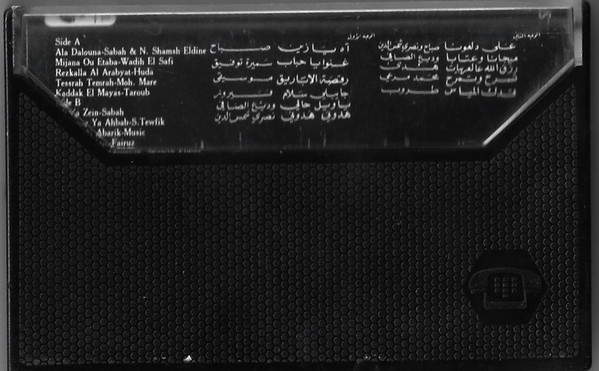 Side A
Ala Dalouna-Sabah & N. Shamsh Eldine
Mijana Ou Etaba-Wadih El Safi
Rezkalla Al Arabyat-Huda
Tessrah Temrah-Moh. Mare
Kaddak El Mayas-Taroub
Side B
Ya Zein-Sabah
Ya Ahbab-S.Tewfik
Abarik-Music
Fairuz
الوجه الأول
آه يا زين صباح
غنوا يا حباب سميرة توفيق
رقصة الأباريق موسيقى
جايبلي سلام فيروز
يا ويل حالي وديع الصافي
هدوني هدوني نصري شمس الدين
الوجه الثاني
على دلعونا صباح ونصري شمس الدين
ميجانا وعتابا وديع الصافي
رزق الله عالعربيات هدى
تسرح وتمرح محمد مرعي
قدك المياس طروب